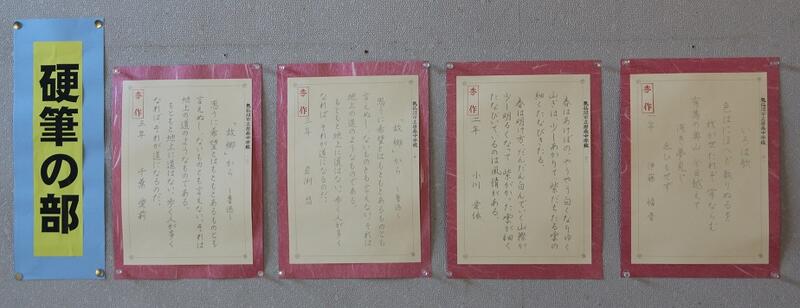 硬筆の部
"故郷"から ー魯迅ー
思うに希望とはもともとあるものとも
言えぬし、ないものとも言えない。それは
地上の道のようなものである。
もともと地上に道はない。歩く人が多く
なれば、それが道になるのだ。
三年 千葉 愛莉
秀作
"故郷"から ー魯迅ー
思うに希望とはもともとあるものとも
言えぬし、ないものとも言えない。それは
地上の道のようなものである。
もともと地上に道はない。歩く人が多く
なれば、それが道になるのだ。
三年
秀作
春はあけぼの やうやう白くなりゆく
山ぎは 少しあかりて 紫だちたる雲の
細くたなびきたる。
春は明け方。だんだん白んでいく山際が
少し明るくなって、紫がかった雲が細く
たなびいているのは風情がある。
二年 小川 愛依
秀作
いろは歌
色はにほへど散りぬるを
我が世たれぞ 常ならむ
有為の奥山 今日越えて
浅き夢見じ
ゑひもせず
年 伊藤
秀作